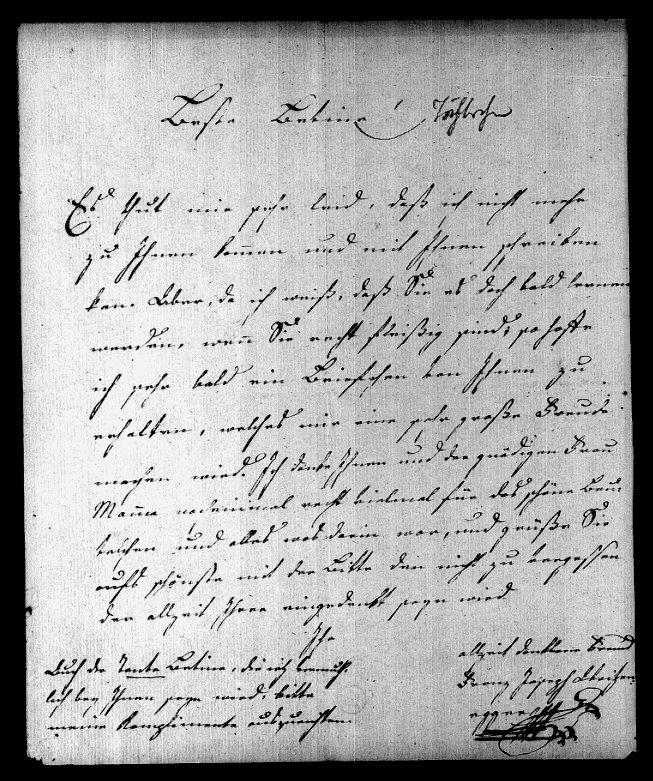 Beste Betine!
Es thut mir sehr leid, daß ich nicht mehr
zu Ihnen kommen und mit Ihnen schreiben
kan. Aber, da ich weiß, daß Sie es doch bald lernen
werden, wenn Sie recht fleißig sind; so hoffe
ich sehr bald ein Briefchen von Ihnen zu
erhalten, welches mir eine sehr große Freude
machen wird. Ich danke Ihnen und der gnädigen Frau
Mama nocheinmal recht vielmal für das schöne Beu-
telchen und alles was darin war, und grüße Sie
aufs schönste mit der Bitte den nicht zu vergessen
der allzeit Ihrer eingedenkt seyn wird
Ihr
allzeit dankbarer Freund
Franz Joseph
Auch die Tante Betine, die itz vermuth-
lich bey Ihnen seyn wird, bitte
meine Komplimente auszurichten.